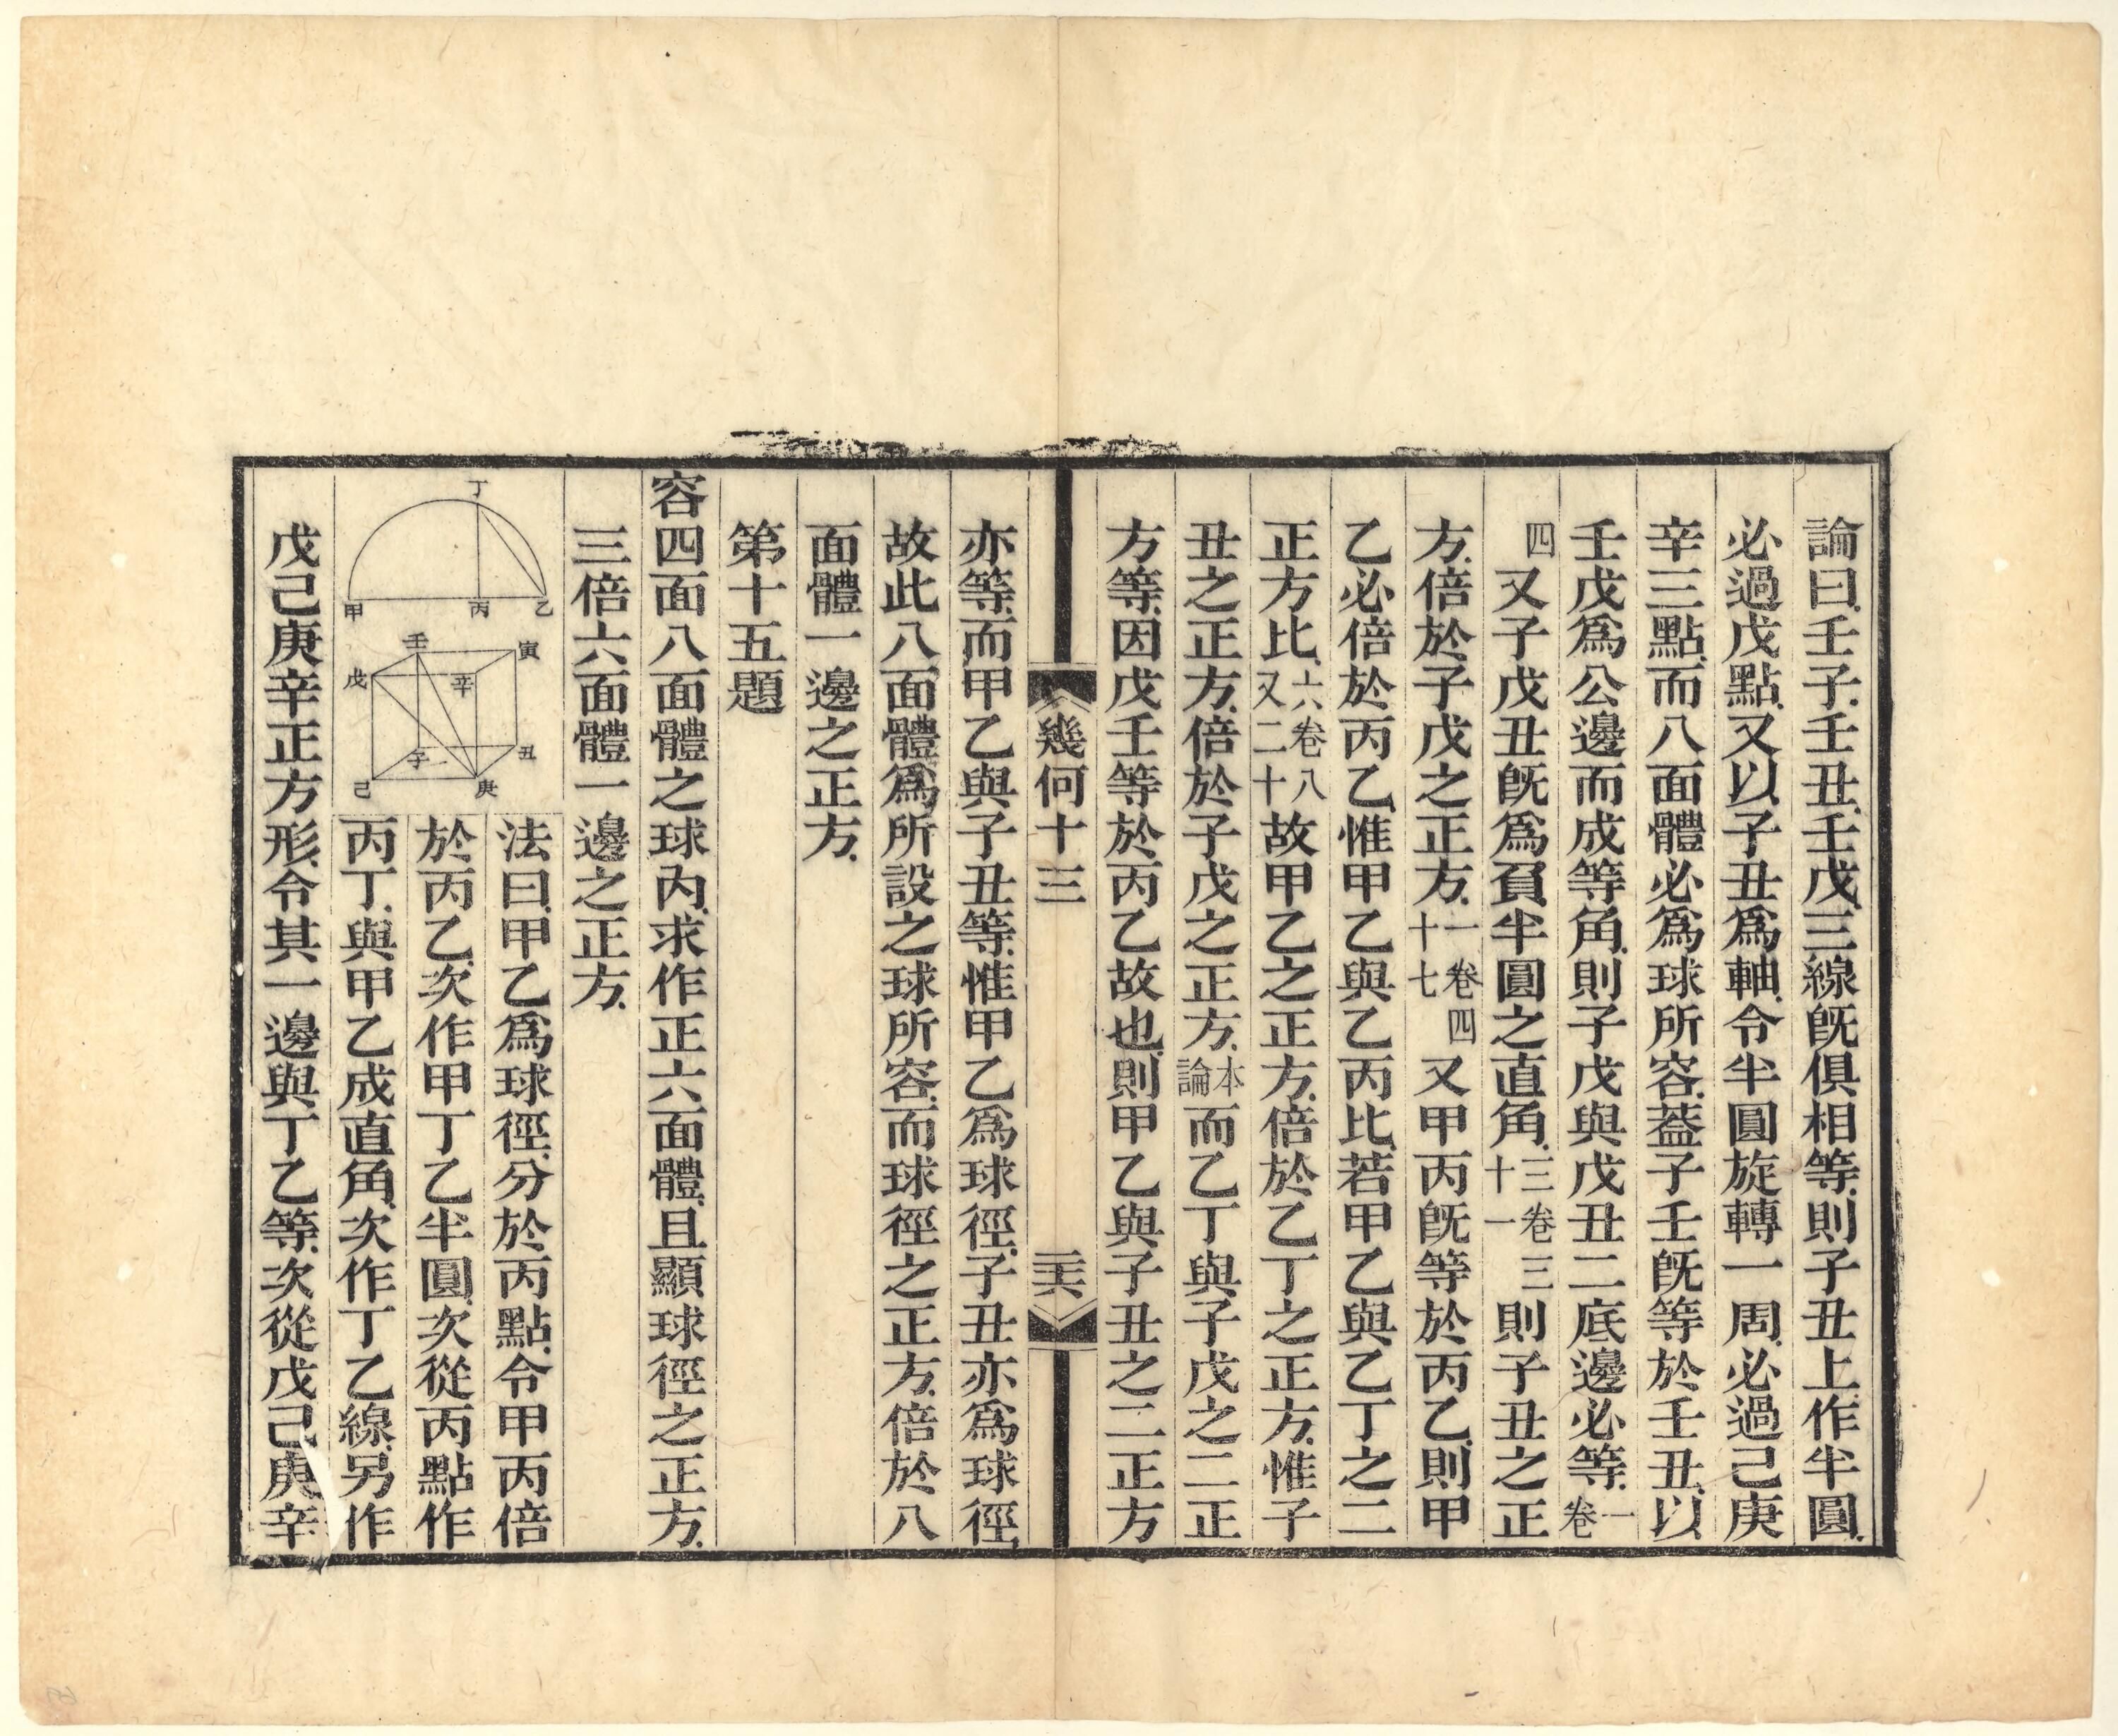 論曰壬子壬丑壬戊三線旣俱相等則子丑上作半圓
必過戊點又以子丑爲軸令半圓旋轉一周必過己庚
辛三點而八面體必爲球所容葢子壬旣等於壬丑以
壬戊爲公邊而成等角則子戊與戊丑二底邊必等一卷
四又子戊丑旣爲負半圓之直角三卷三十一則子丑之正
方倍於子戊之正方一卷四十七又甲丙旣等於丙乙則甲
乙必倍於丙乙惟甲乙與乙丙比若甲乙與乙丁之二
正方比六卷八又二十故甲乙之正方倍於乙丁之正方惟子
丑之正方倍於子戊之正方本論而乙丁與子戊之二正
方等因戊壬等於丙乙故也則甲乙與子丑之二正方
幾何十三
二十六
亦等而甲乙與子丑等惟甲乙爲球徑子丑亦爲球徑
故此八面體爲所設之球所容而球徑之正方倍於八
面體一邊之正方
第十五題
容四面八面體之球內求作正六面體且顯球徑之正方
三倍六面體一邊之正方
法曰甲乙爲球徑分於丙點令甲丙倍
於丙乙次作甲丁乙半圓次從丙點作
丁
甲
丙
乙
壬
寅
戊
辛
子
丑
己
庚
丙丁與甲乙成直角次作丁乙線另作
戊己庚辛正方形令其一邊與丁乙等次從戊己庚辛